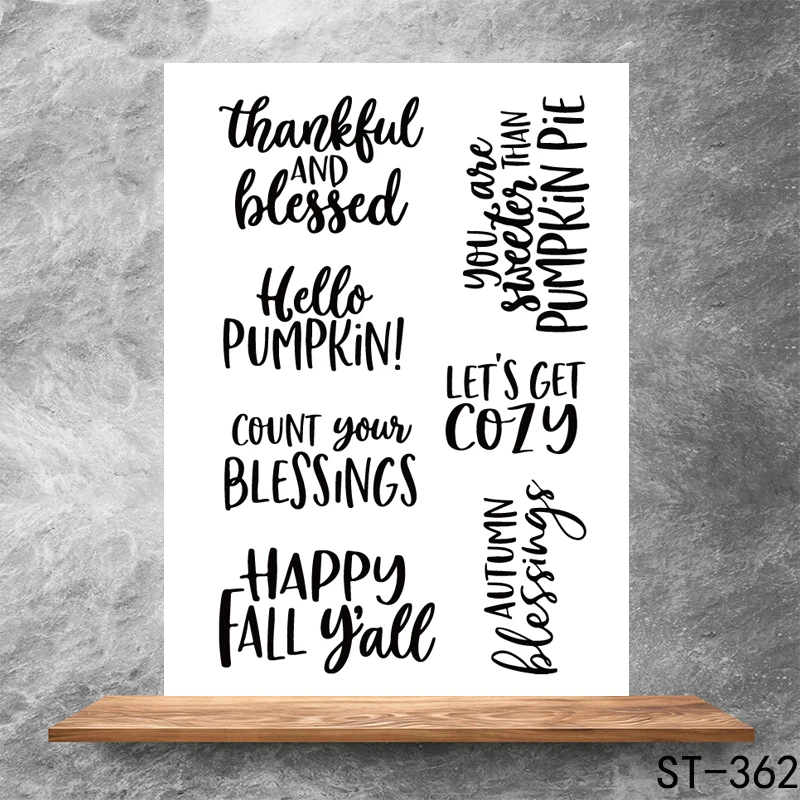 thankful
AND
blessed
Hello
PUMPKiN!
COUNT your
BLESSiNGS
HAPPY
FALL Y'all
YOU are
sweeter THAN
PUMPKiN PiE
LET'S GET
COZY
AUTUMN
blessings
ST-362